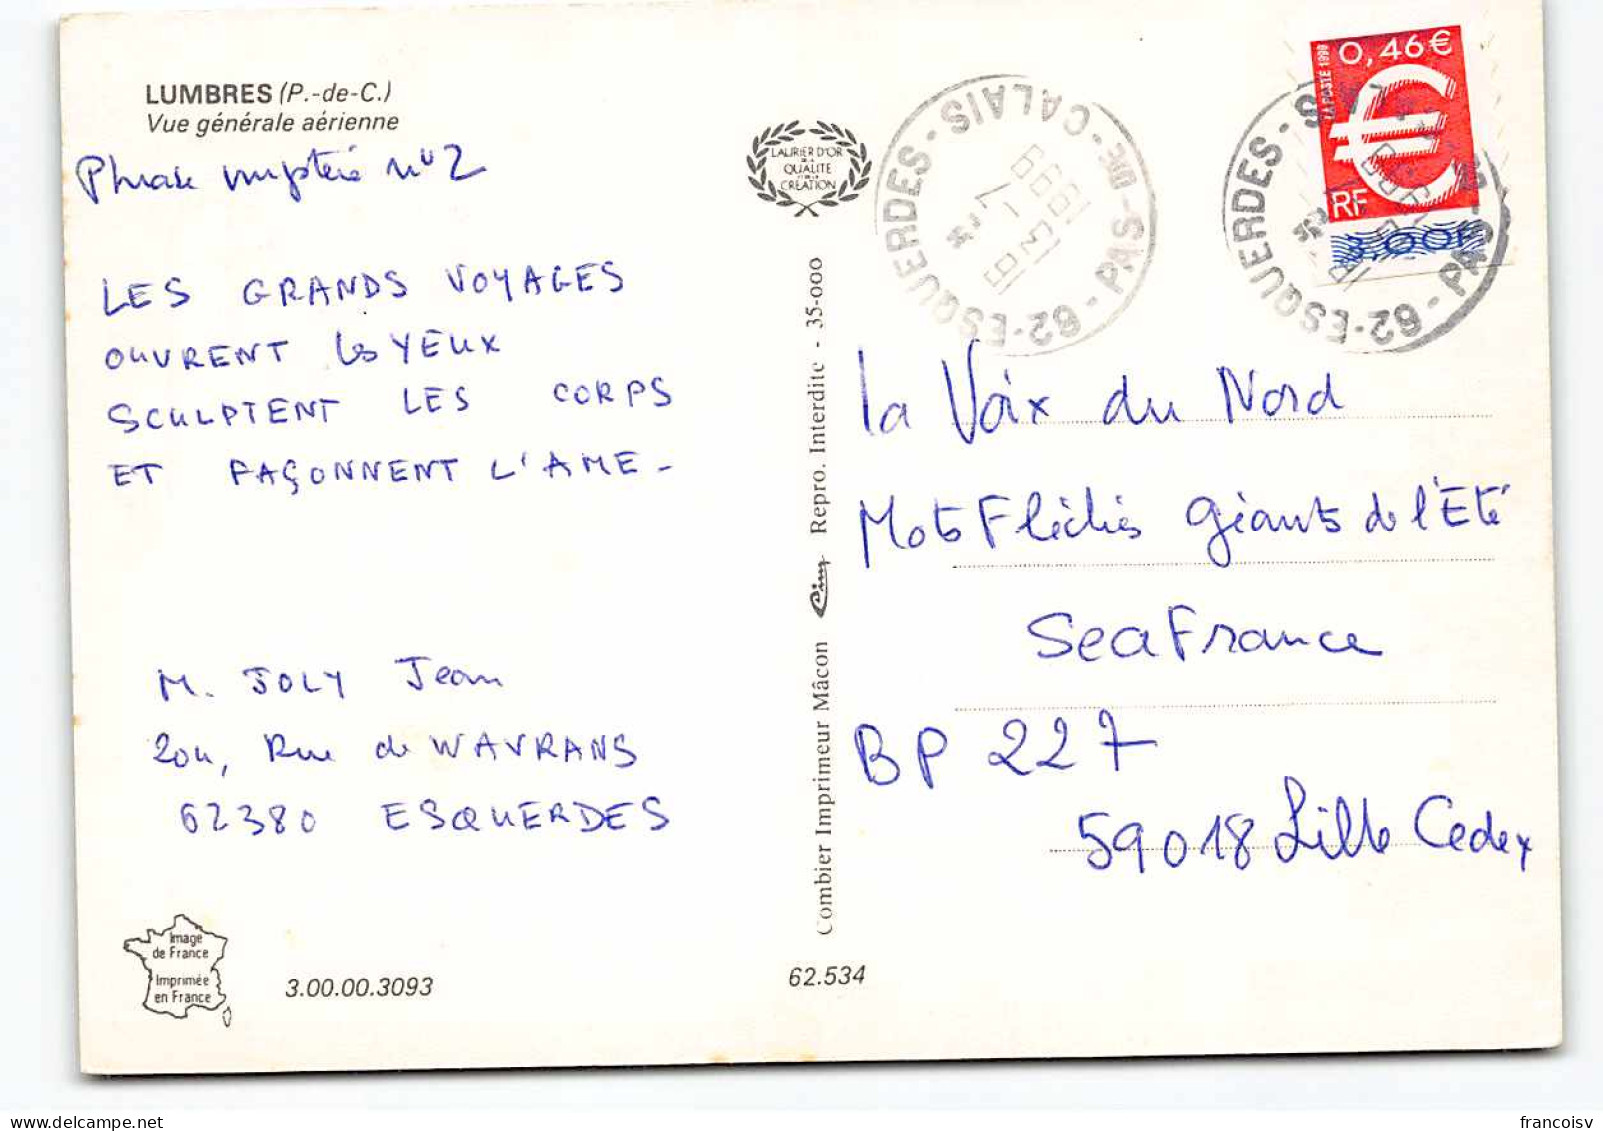 LUMBRES (P.-de-C.)
Vue générale aérienne
Phrase mystère n° 2
LES GRANDS VOYAGES
OUVRENT les YEUX
SCULPTENT LES CORPS
ET FAÇONNENT L'AME -
M. JOLY Jean
204, Rue de WAVRANS
62380 ESQUERDES
Image
de France
Imprimée
en France
3.00.00.3093
LAURIER D'OR
DE LA
QUALITE
ET DE LA
CRÉATION
Combier Imprimeur Mâcon Cim Repro. Interdite - 35-000
62.534
62-ESQUERDES - PAS-DE-CALAIS -
1999
62-ESQUERDES - PAS
0,46€
LA POSTE 1999
RF
3,00F
La Voix du Nord
Mots Fléchés Géants de l'Eté
SeaFrance
BP 227
59018 Lille Cedex
delcampe.net
francoisv